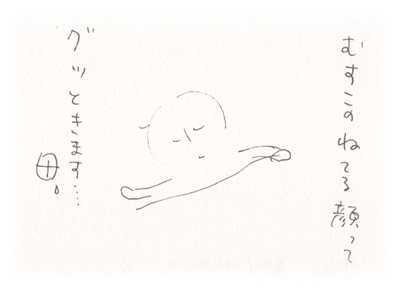 むすこのねてる顔って
グッときます…
母。